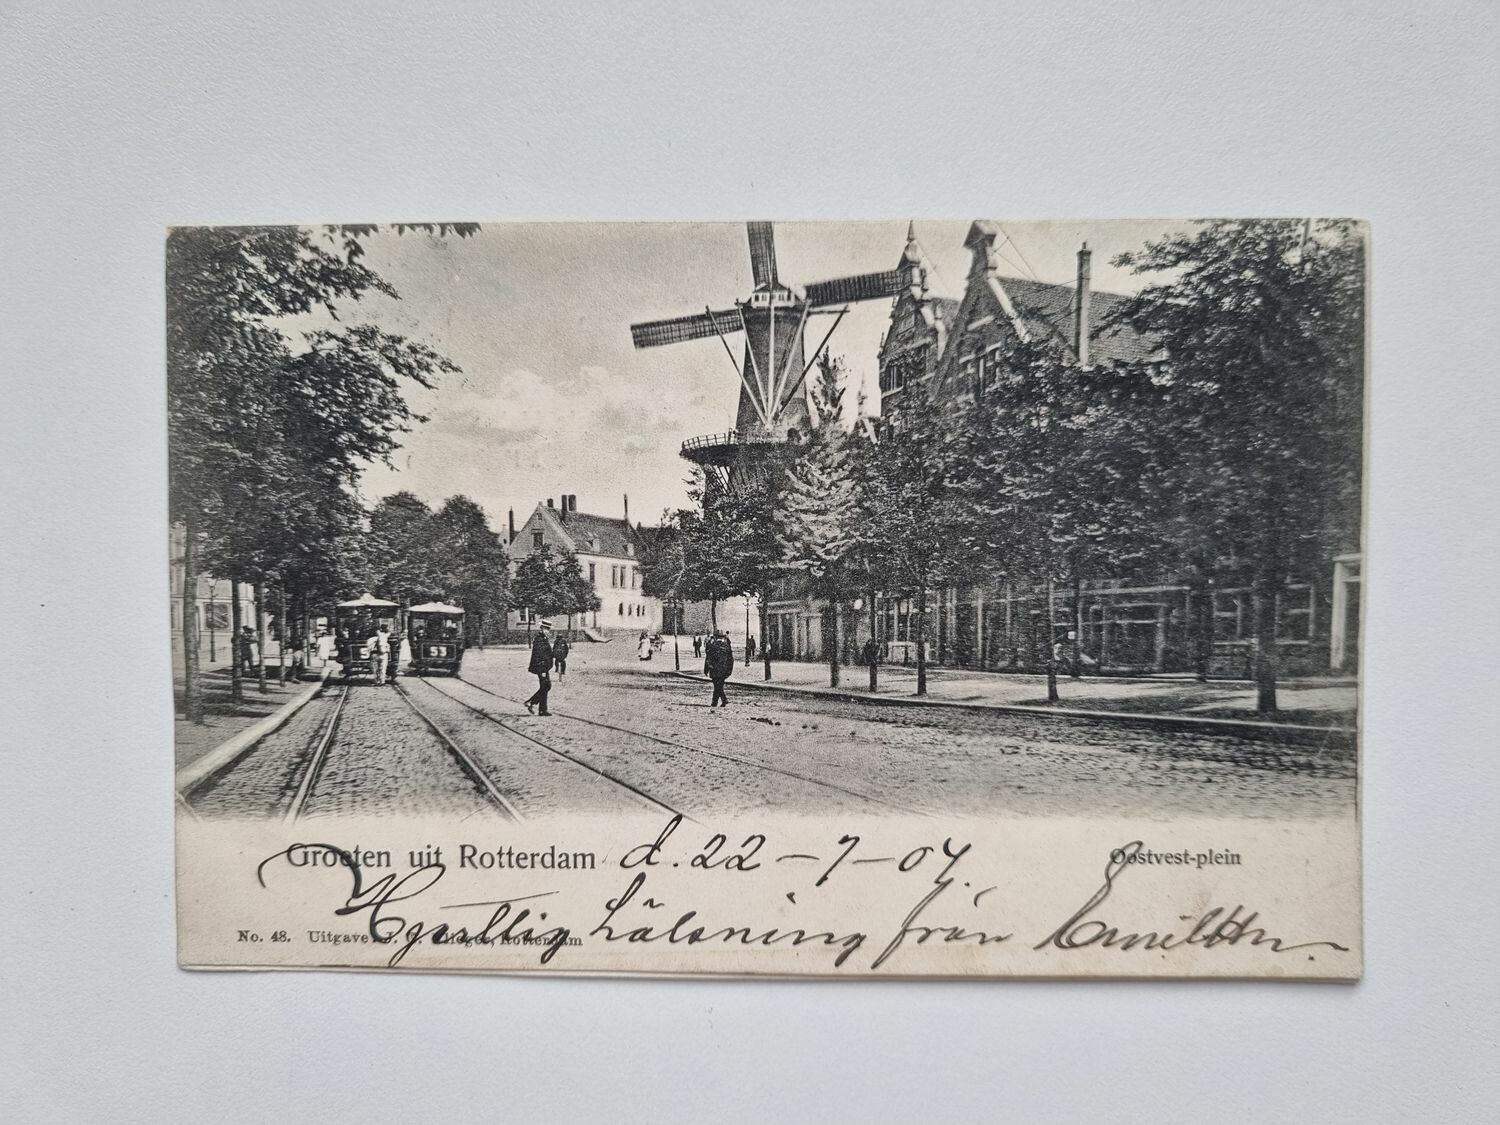 53
Groeten uit Rotterdam d. 22-7-04. Oostvest-plein
Hjärtlig hälsning från
No. 48. Uitgave J. Rotterdam